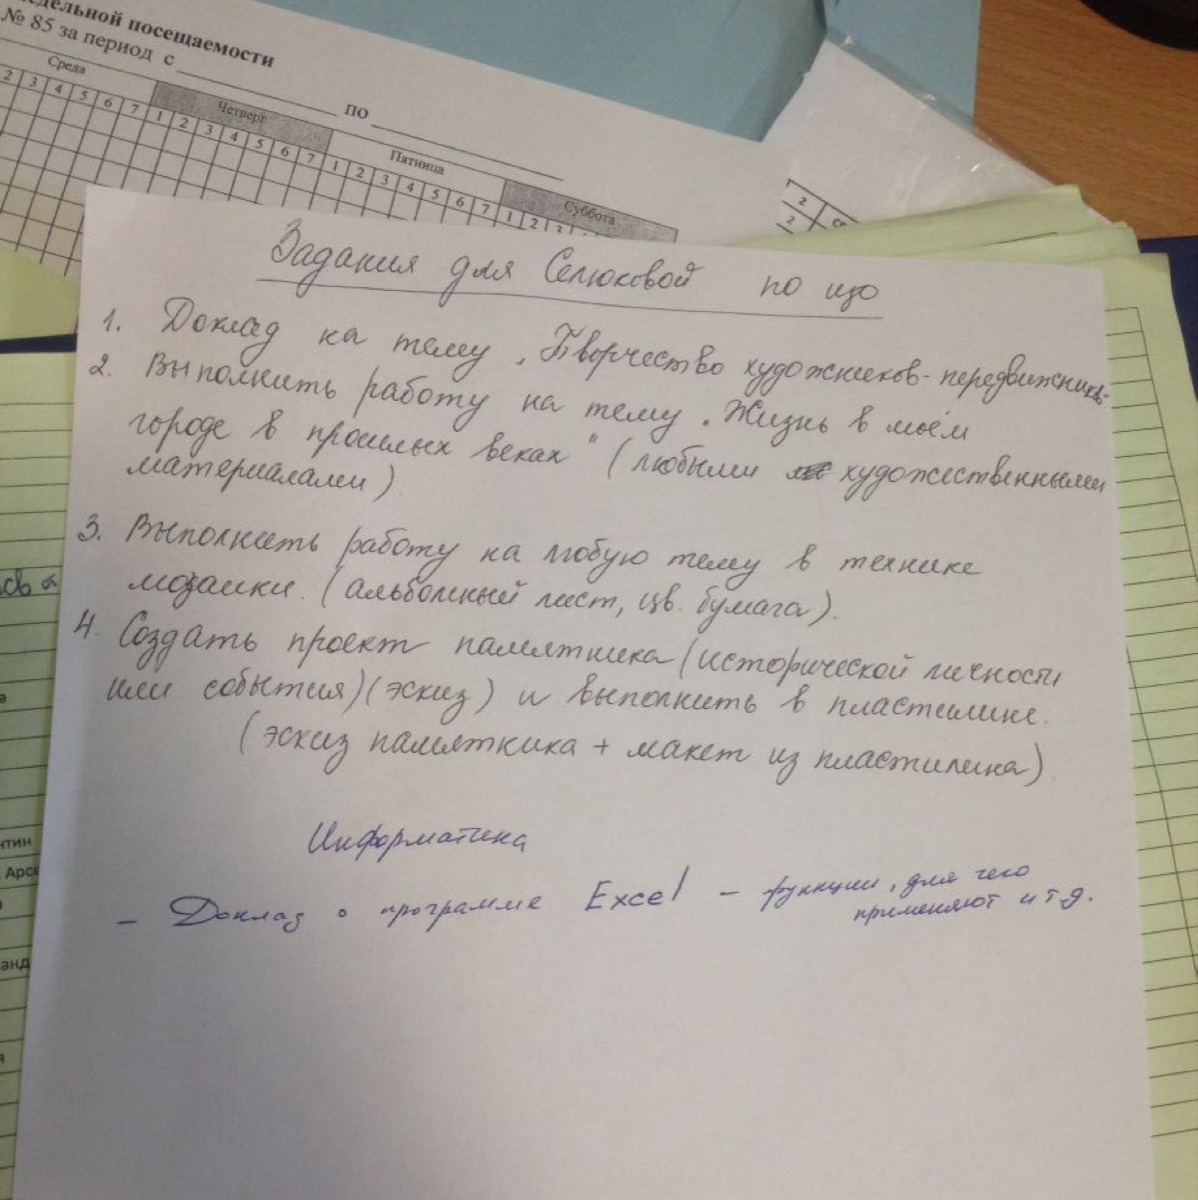 едельной посещаемости
№ 85 за период с ПО
Среда Четверг Пятница Суббота
2 3 4 5 6 7 1 2 3 4 5 6 7 1 2 3 4 5 6 7 1 2 3
2
2
Задания для Селюковой по изо
1. Доклад на тему „Творчество художников-передвижников"
2. Выполнить работу на тему „Жизнь в моём
городе в прошлых веках" (любыми художественными
материалами)
3. Выполнить работу на любую тему в технике
мозаики. (альбомный лист, цв. бумага).
4. Создать проект памятника (исторической личности
или события) (эскиз) и выполнить в пластилине.
(эскиз памятника + макет из пластилина)
Информатика
– Доклад о программе Excel – функции, для чего
применяют и т д.
нтин
Арсе
анд